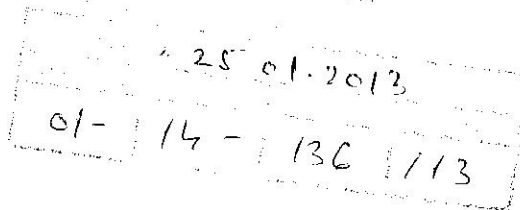 25 01.2013
01- 14 - 136 /13